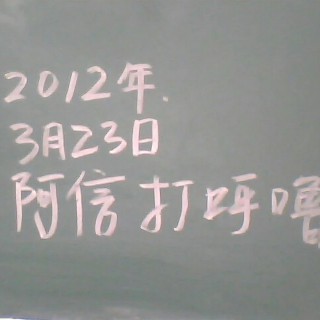 2012年.
3月23日
阿信打呼嚕